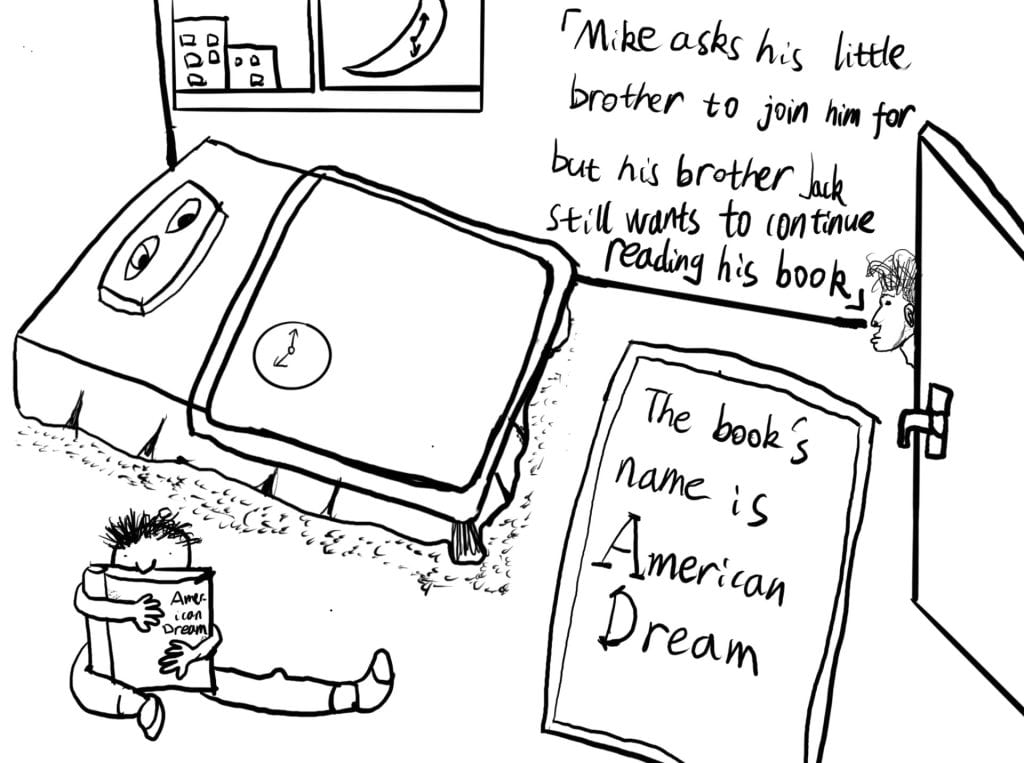 「Mike asks his little
brother to join him for
but his brother Jack
still wants to continue
reading his book」
The book's
name is
American
Dream
Amer-
ican
Dream